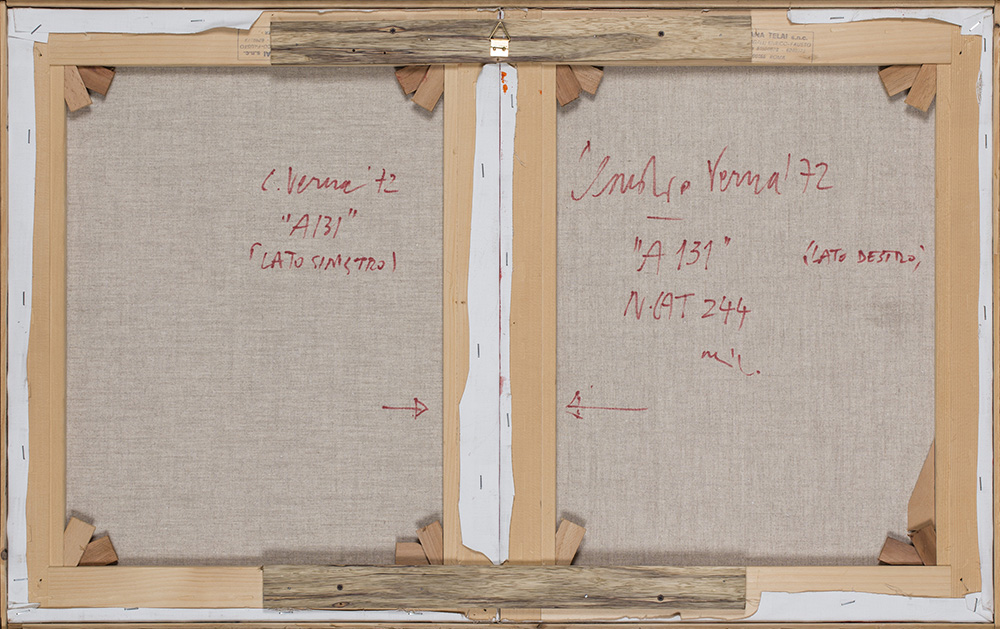 C. Verna '72
"A131"
(LATO SINISTRO)
Verna '72
"A 131"
(LATO DESTRO)
N. CAT 244
ANA TELAI s.n.c.